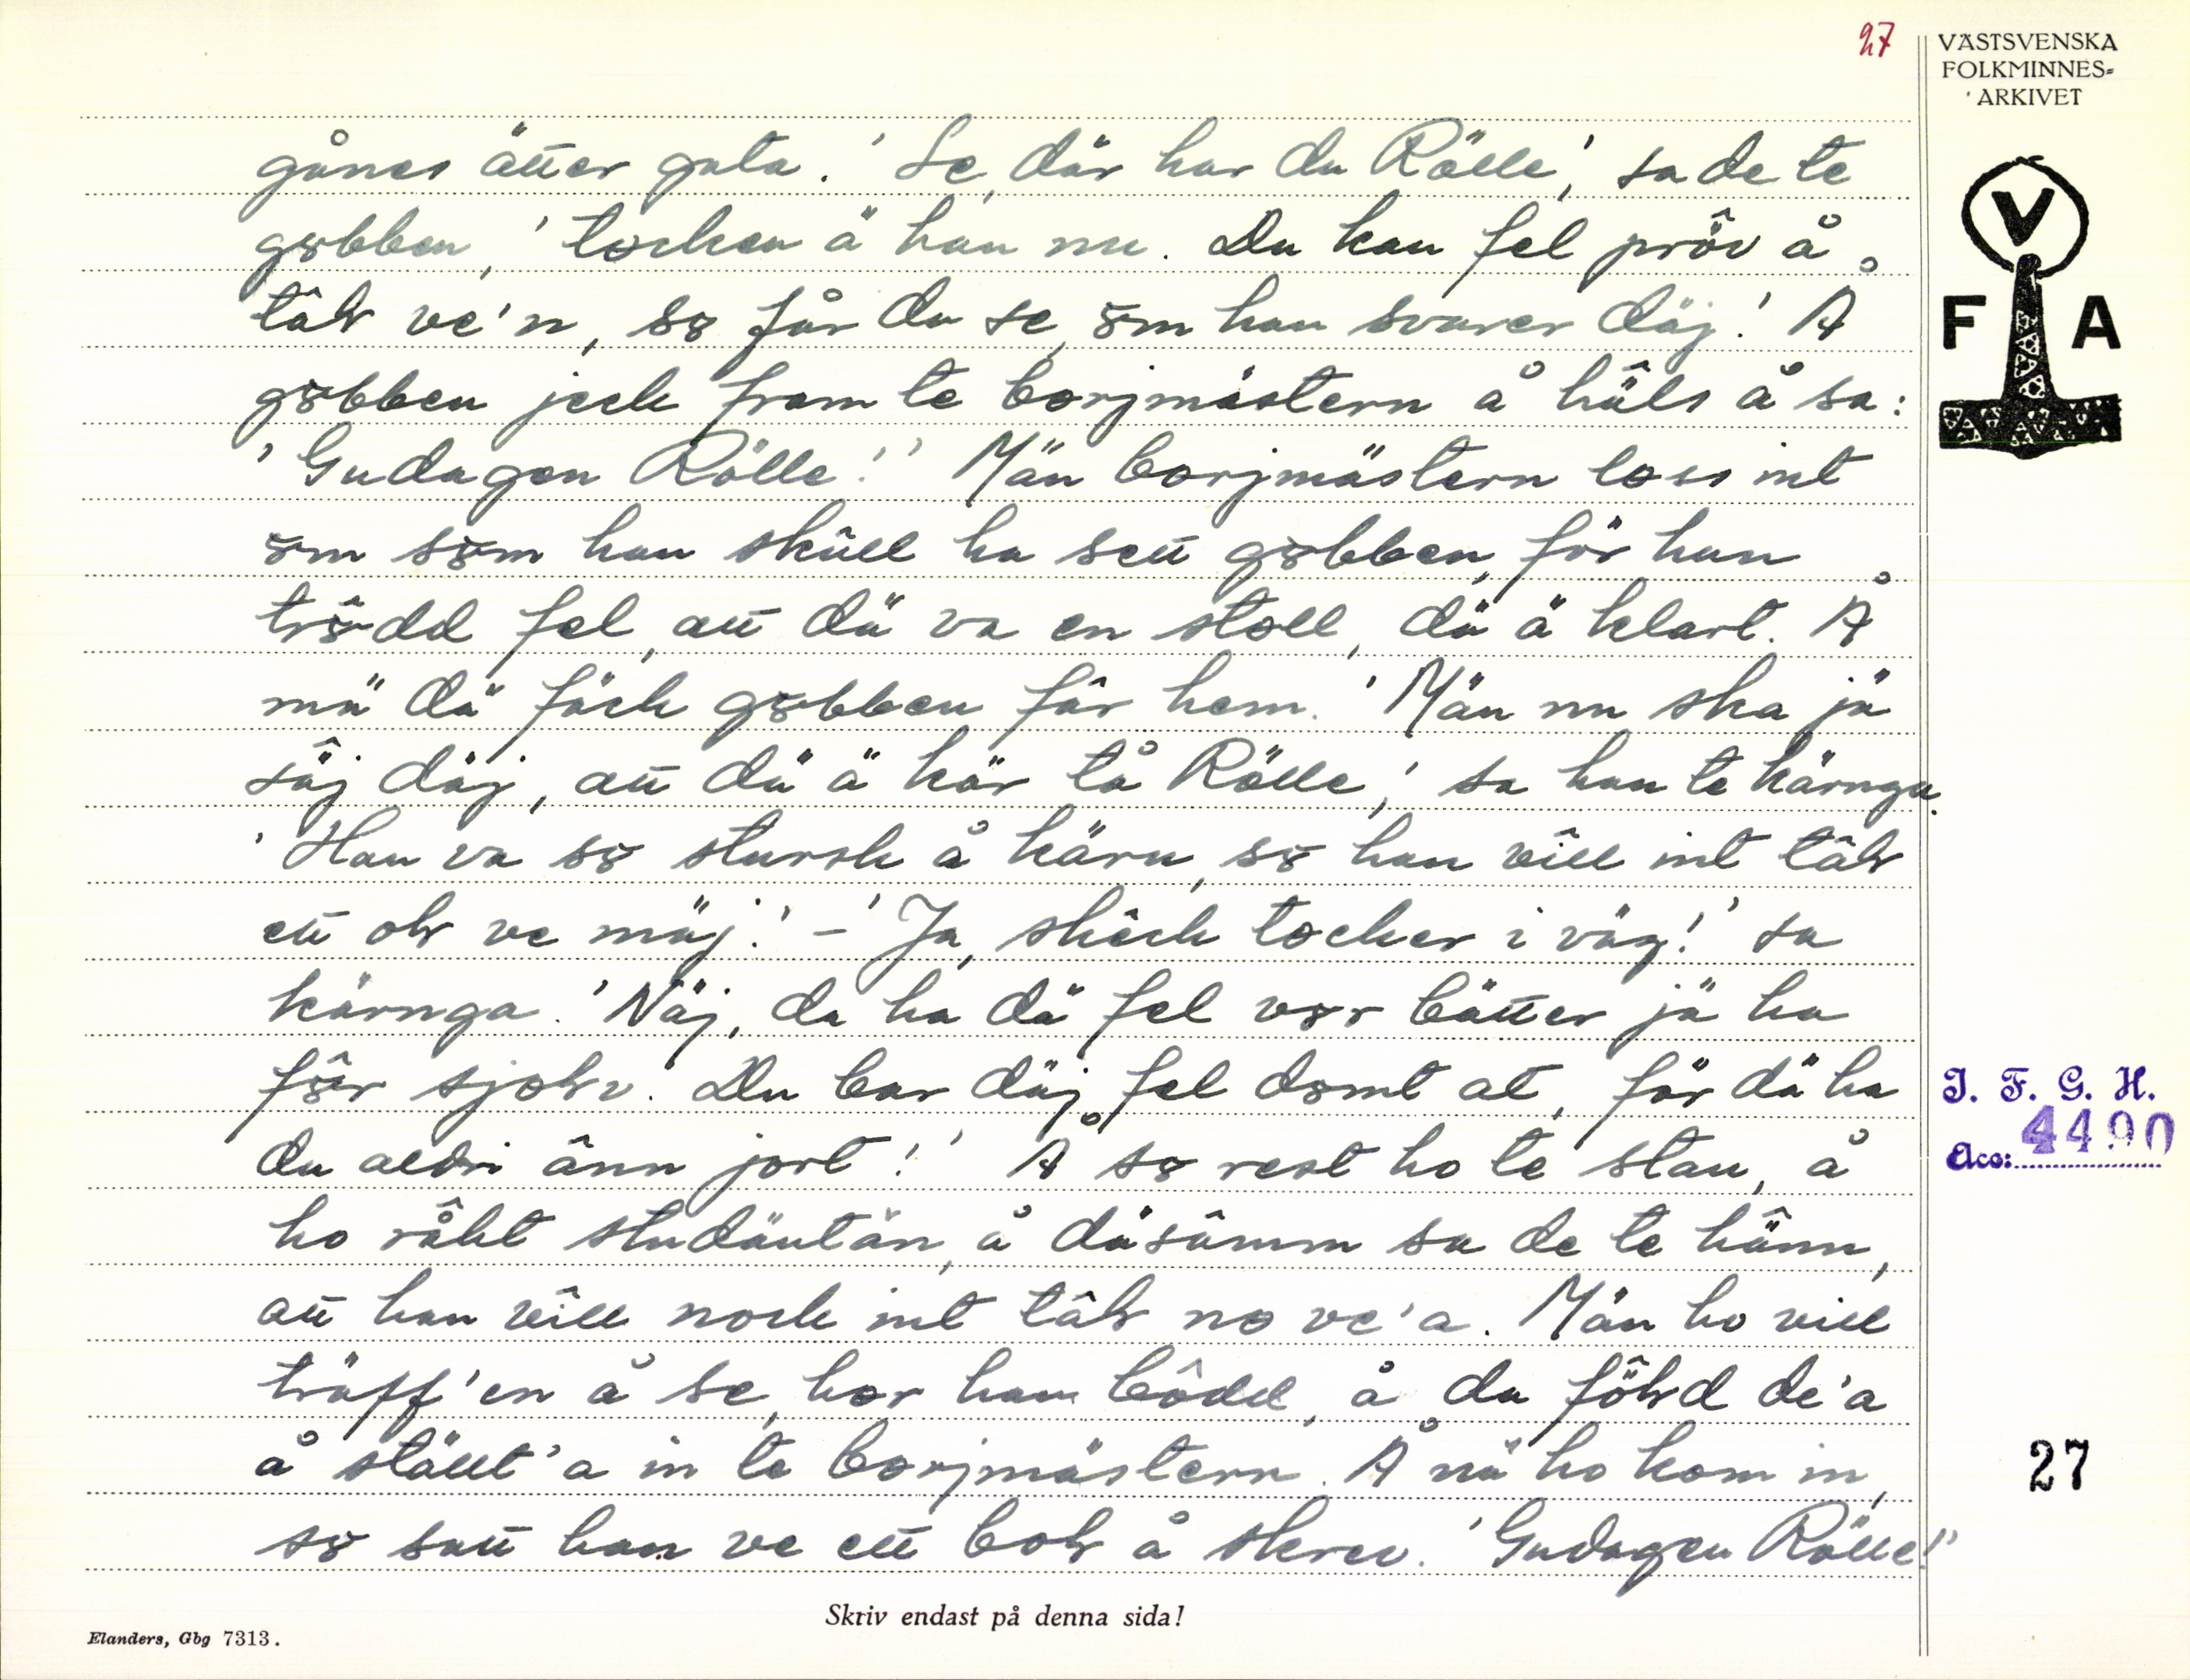 27
VÄSTSVENSKA
FOLKMINNES=
ARKIVET
V
F A
gånes ätter gata. 'Se, där har du Rölle', sa de te
gȣbben, 'tocken ä han nu. Du kan fel pröv å
tâls ve'n, sȣ får du se, ȣm han svarer däj.' Å
gȣbben jeck fram te borjmästern å häls å sa:
'Gudagen Rölle!' Män borjmästern loss int
ȣm sȣm han skull ha sett gȣbben, för han
trȣ̂dd fel, att dä va en stoll, dä ä klart. Å
mä dä föck gȣbben får hem. 'Män nu ska jä
säj däj, att dä ä kär tå Rölle', sa han te kärnga.
'Han va sȣ stursk å käru, sȣ han vill int tâls
ett ols ve mäj.' – 'Ja, skêck tocker i väg!' sa
kärnga. 'Näj, da ha dä fel vȣr bätter jä ha
fȣ̂r sjolv. Du bar däj fel domt at, för dä ha
du aldri änn jort!' Å sȣ rest ho te stan, å
ho råkt studäntän, å däsâmm sa de te hänn,
att han vill nock int tâls no ve'a. Män ho vill
träff'en å se, hor han bôdd, å da föhd de'a
å ställt'a in te borjmästern. Å nä ho kom in,
sȣ satt han ve ett bols å skrev. 'Gudagen Rölle!'
I. F. G. H.
Acc: 4490
27
Skriv endast på denna sida!
Elanders, Gbg 7313.